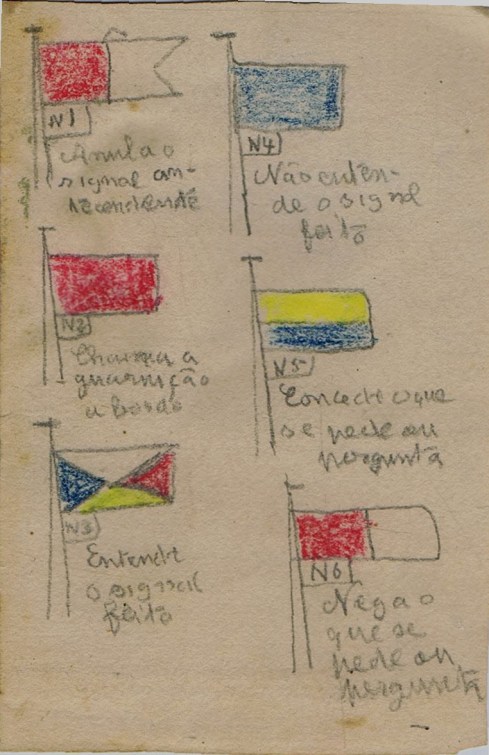 N1
Annula o
signal an-
tecendente
N2
Chama a
guarnição
a bordo
N3
Entende
o signal
feito
N4
Não enten-
de o signal
feito
N5
Concede o que
se pede ou
pergunta
N6
Nega o
que se
pede ou
pergunta